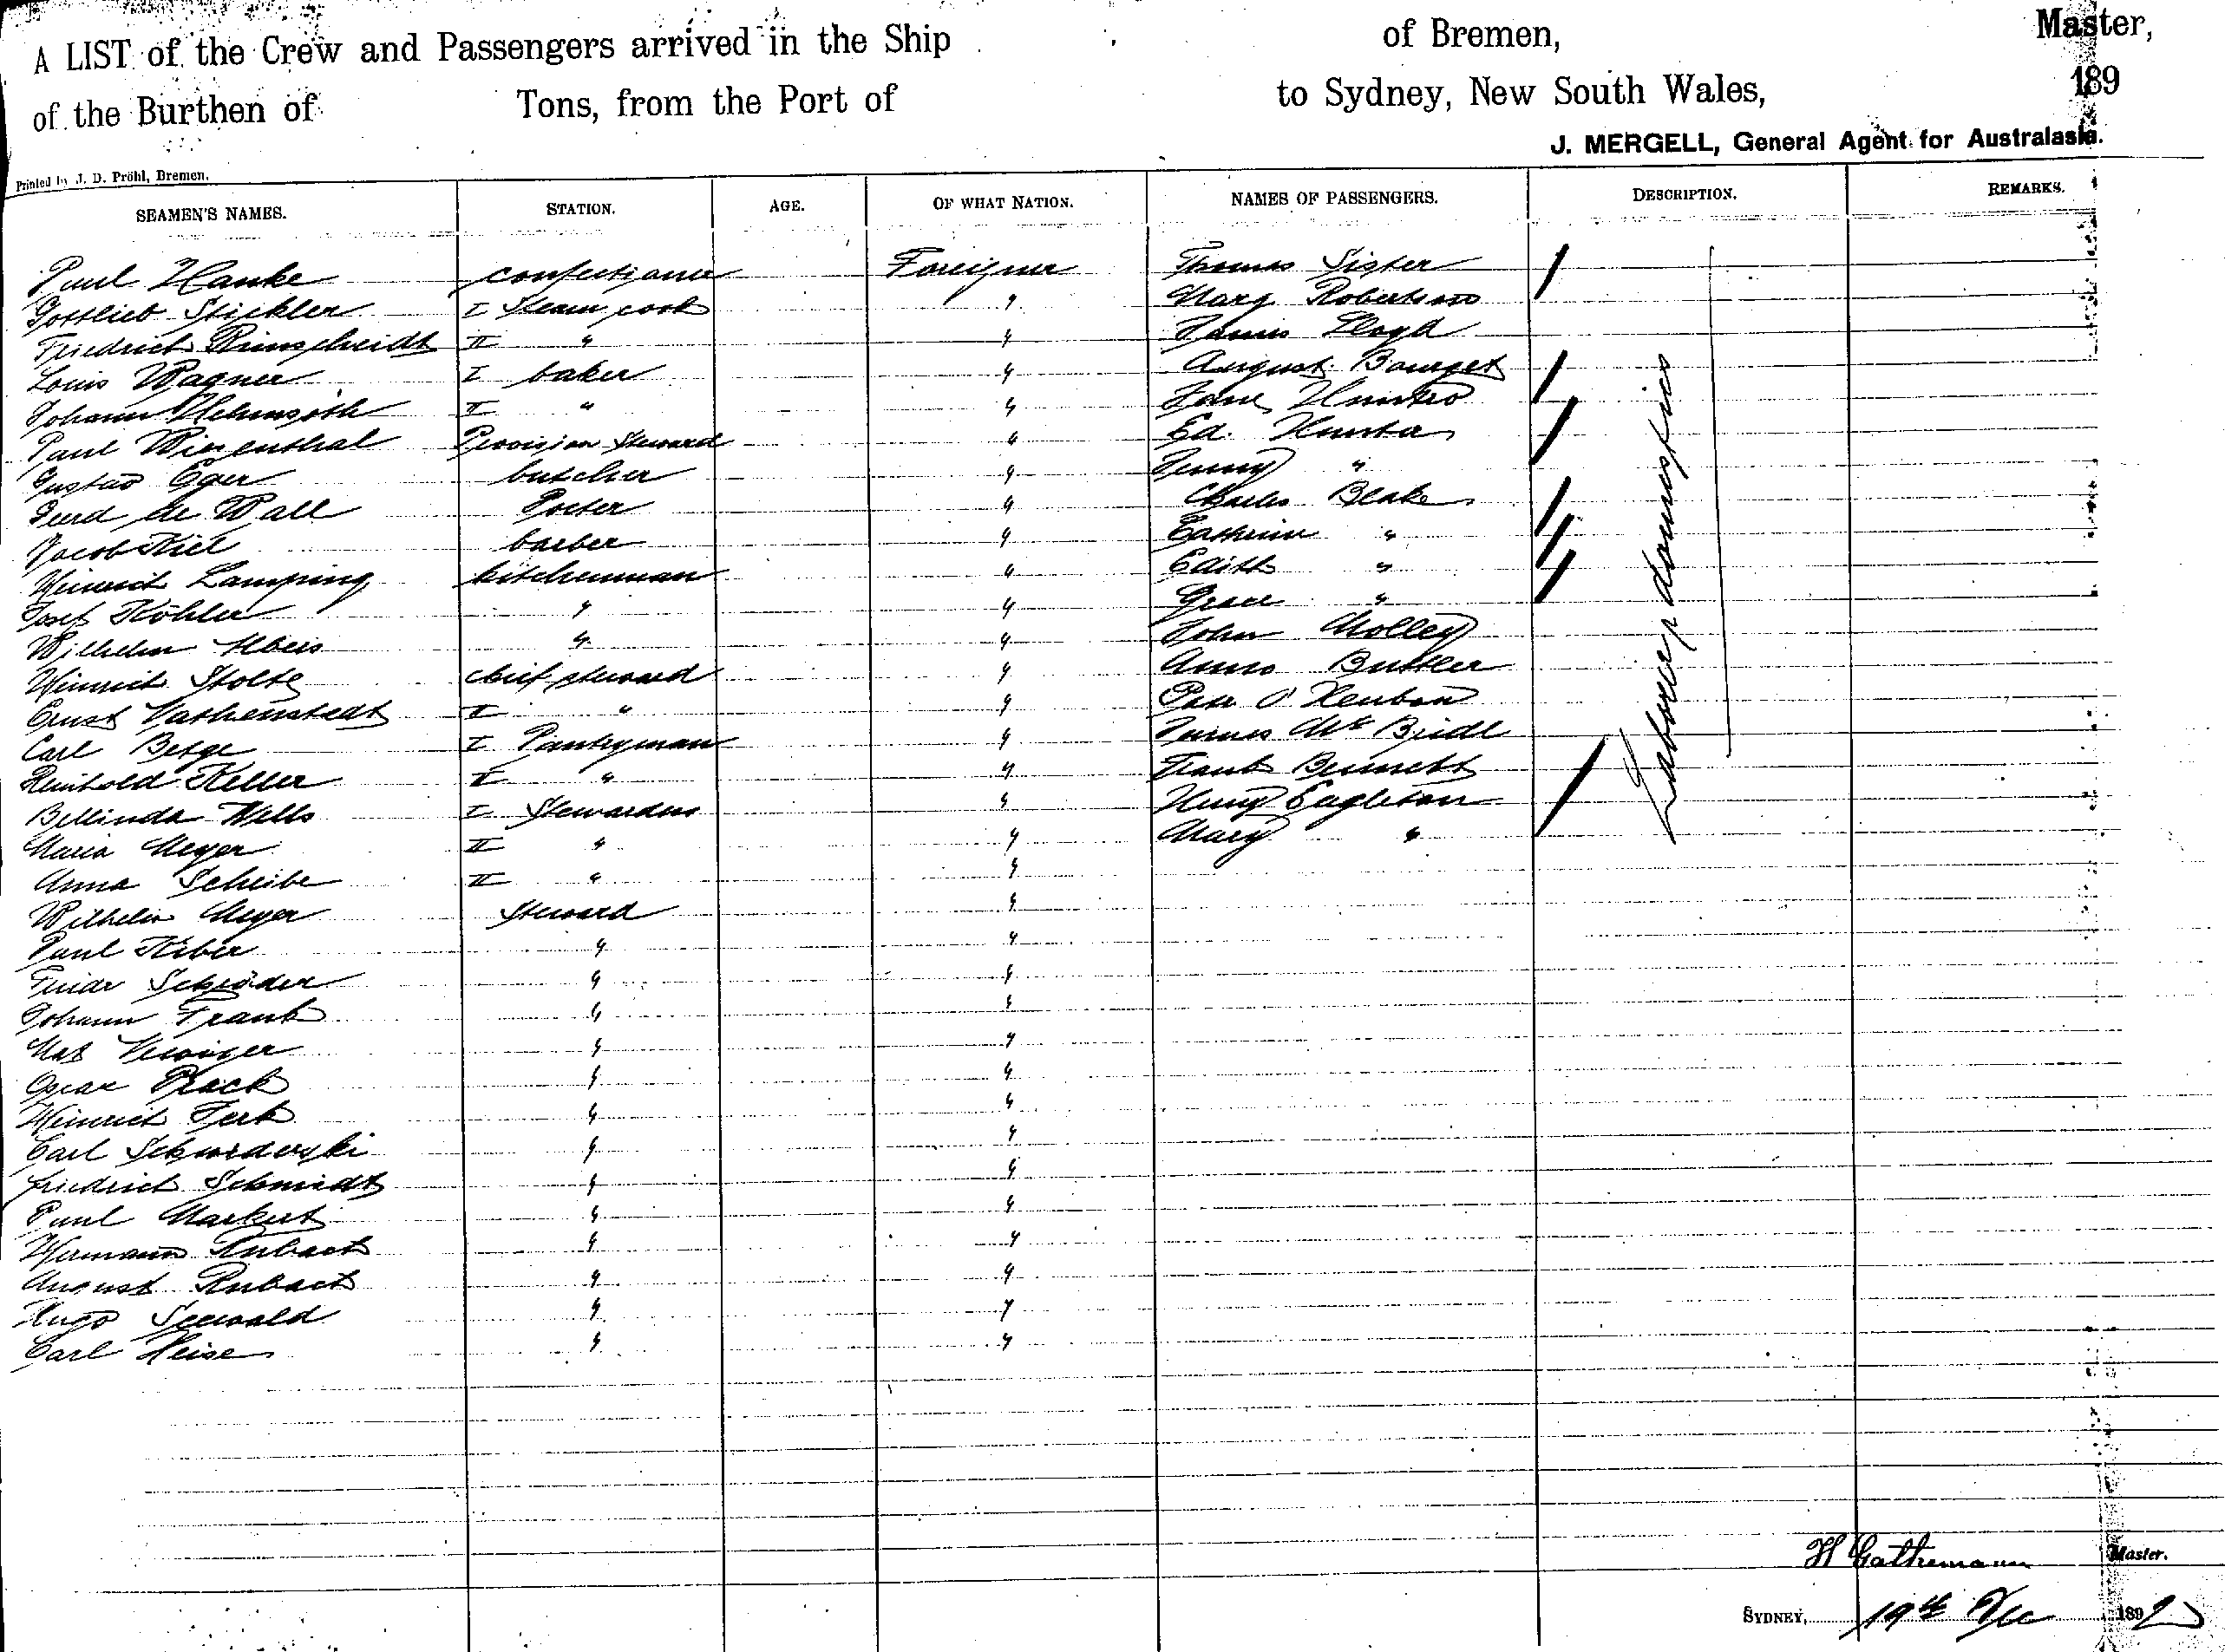 A LIST of the Crew and Passengers arrived in the Ship of Bremen, Master,
of the Burthen of Tons, from the Port of to Sydney, New South Wales, 189
J. MERGELL, General Agent for Australasia.
Printed by J. D. Pröhl, Bremen.
SEAMEN'S NAMES. STATION. AGE. OF WHAT NATION. NAMES OF PASSENGERS. DESCRIPTION. REMARKS.
Paul Hanke confectioner Foreigner Thomas Sister
Gottlieb Stickler I Steam cook " Mary Robertson
Friedrich Rinscheidt II " " James Lloyd
Louis Wagner I baker " August Bourget
Johann II " " Jane
Paul Wiesenthal Provision Steward " Ed. Hunter
Gustav Eger butcher " Jenny "
de Wall Porter " Charles Blake
Jacob Kiel barber " Catherine "
Heinrich Lamping kitchenman " Edith "
Josef Köhler " " Grace "
Wilhelm " " John Molley
Heinrich Stolte chief steward " Anno Buttler
Ernst Vathenstedt II " " O
Carl Berge I Pantryman " James Mc
Reinhold Keller II " " Frank Bennett
Bellinda Wells I Stewardess " Henry Eagleton
Maria Meyer II " " Mary "
Anna Scheibe II " "
Wilhelm Meyer Steward "
Paul " "
Schröder " "
Johann Frank " "
" "
Oscar Prack " "
Heinrich " "
Carl " "
Friedrich Schmidt " "
Paul Markert " "
Hermann Rubach " "
August Rubach " "
Hugo Seewald " "
Carl Heise " "
Labourer domestics
H Gathemann Master.
SYDNEY, 19th Dec 1892